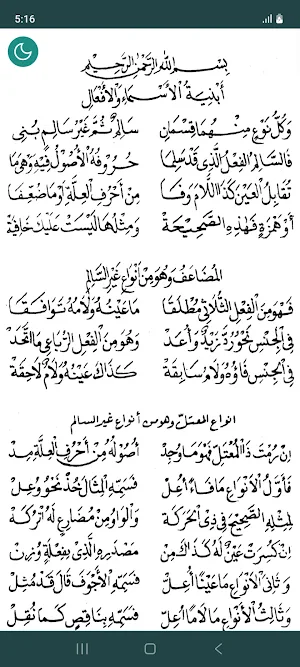 5:16
بِسْمِ اللهِ الرَّحْمٰنِ الرَّحِيْمِ
أَبْنِيَةُ الْأَسْمَاءِ وَالْأَفْعَالِ
وَكُلُّ نَوْعٍ مِنْهُمَا قِسْمَانِ سَالِمٌ ثُمَّ غَيْرُ سَالِمٍ بُنِى
فَالسَّالِمُ الْفِعْلُ الَّذِى قَدْ سَلِمَا حُرُوْفُهُ الْأُصُوْلُ فِيْهِ وَهْىَ مَا
تُقَابِلُ الْعَيْنَ كَذَا اللَّامَ وَفَا مِنْ أَحْرُفِ الْعِلَّةِ أَوْ مَا ضُعِّفَا
أَوْ هَمْزَةٍ فَهٰذِهِ الصَّحِيْحَةْ وَمِثْلُهَا لَيْسَتْ عَلَيْكَ خَافِيَةْ
المُضَاعَفُ وَهُوَ مِنْ أَنْوَاعِ غَيْرِ السَّالِمِ
فَهُوَ مِنَ الْفِعْلِ الثُّلَاثِىْ مُطْلَقًا مَا عَيْنُهُ وَلَامُهُ تَوَافَقَا
فِى الْجِنْسِ نَحْوُ رُدَّ زَيْدٌ وَأَعَدّ وَهُوَ مِنَ الْفِعْلِ الرُّبَاعِىْ مَا اتَّحَدْ
فِى الْجِنْسِ فَاؤُهُ وَلَامٌ سَابِقَةْ كَذَاكَ عَيْنُهُ وَلَامٌ لَاحِقَةْ
انواع المعتل وهو من أنواع غير السالم
إِنْ رُمْتَ ذَا الْمُعْتَلَّ فَهْوَ مَا وُجِدْ أُصُوْلُهُ مِنْ أَحْرُفِ الْعِلَّةِ مِدّ
فَأَوَّلُ الْأَنْوَاعِ مَا فَاءً أُعِلّ فَسَمِّهِ الْمِثَالَ خُذْ نَحْوُ وُعِلْ
لِمِثْلِهِ الصَّحِيْحِ فِى ذِى الْحَرَكَةْ وَالْوَاوُ مِنْ مُضَارِعٍ لَهُ اتْرُكَةْ
إِنْ كُسِرَتْ عَيْنٌ لَهُ كَذَاكَ مِنْ مَصْدَرِهِ الَّذِى بِفِعْلَةٍ وُزِنْ
وَثَانِىَ الْأَنْوَاعِ مَا عَيْنًا أُعِلّ فَسَمِّهِ الْأَجْوَفَ قَالَ قَدْ مُثِلْ
وَثَالِثُ الْأَنْوَاعِ مَا لَامًا أُعِلّ فَسَمِّهِ بِنَاقِصٍ كَمَا نُقِلْ